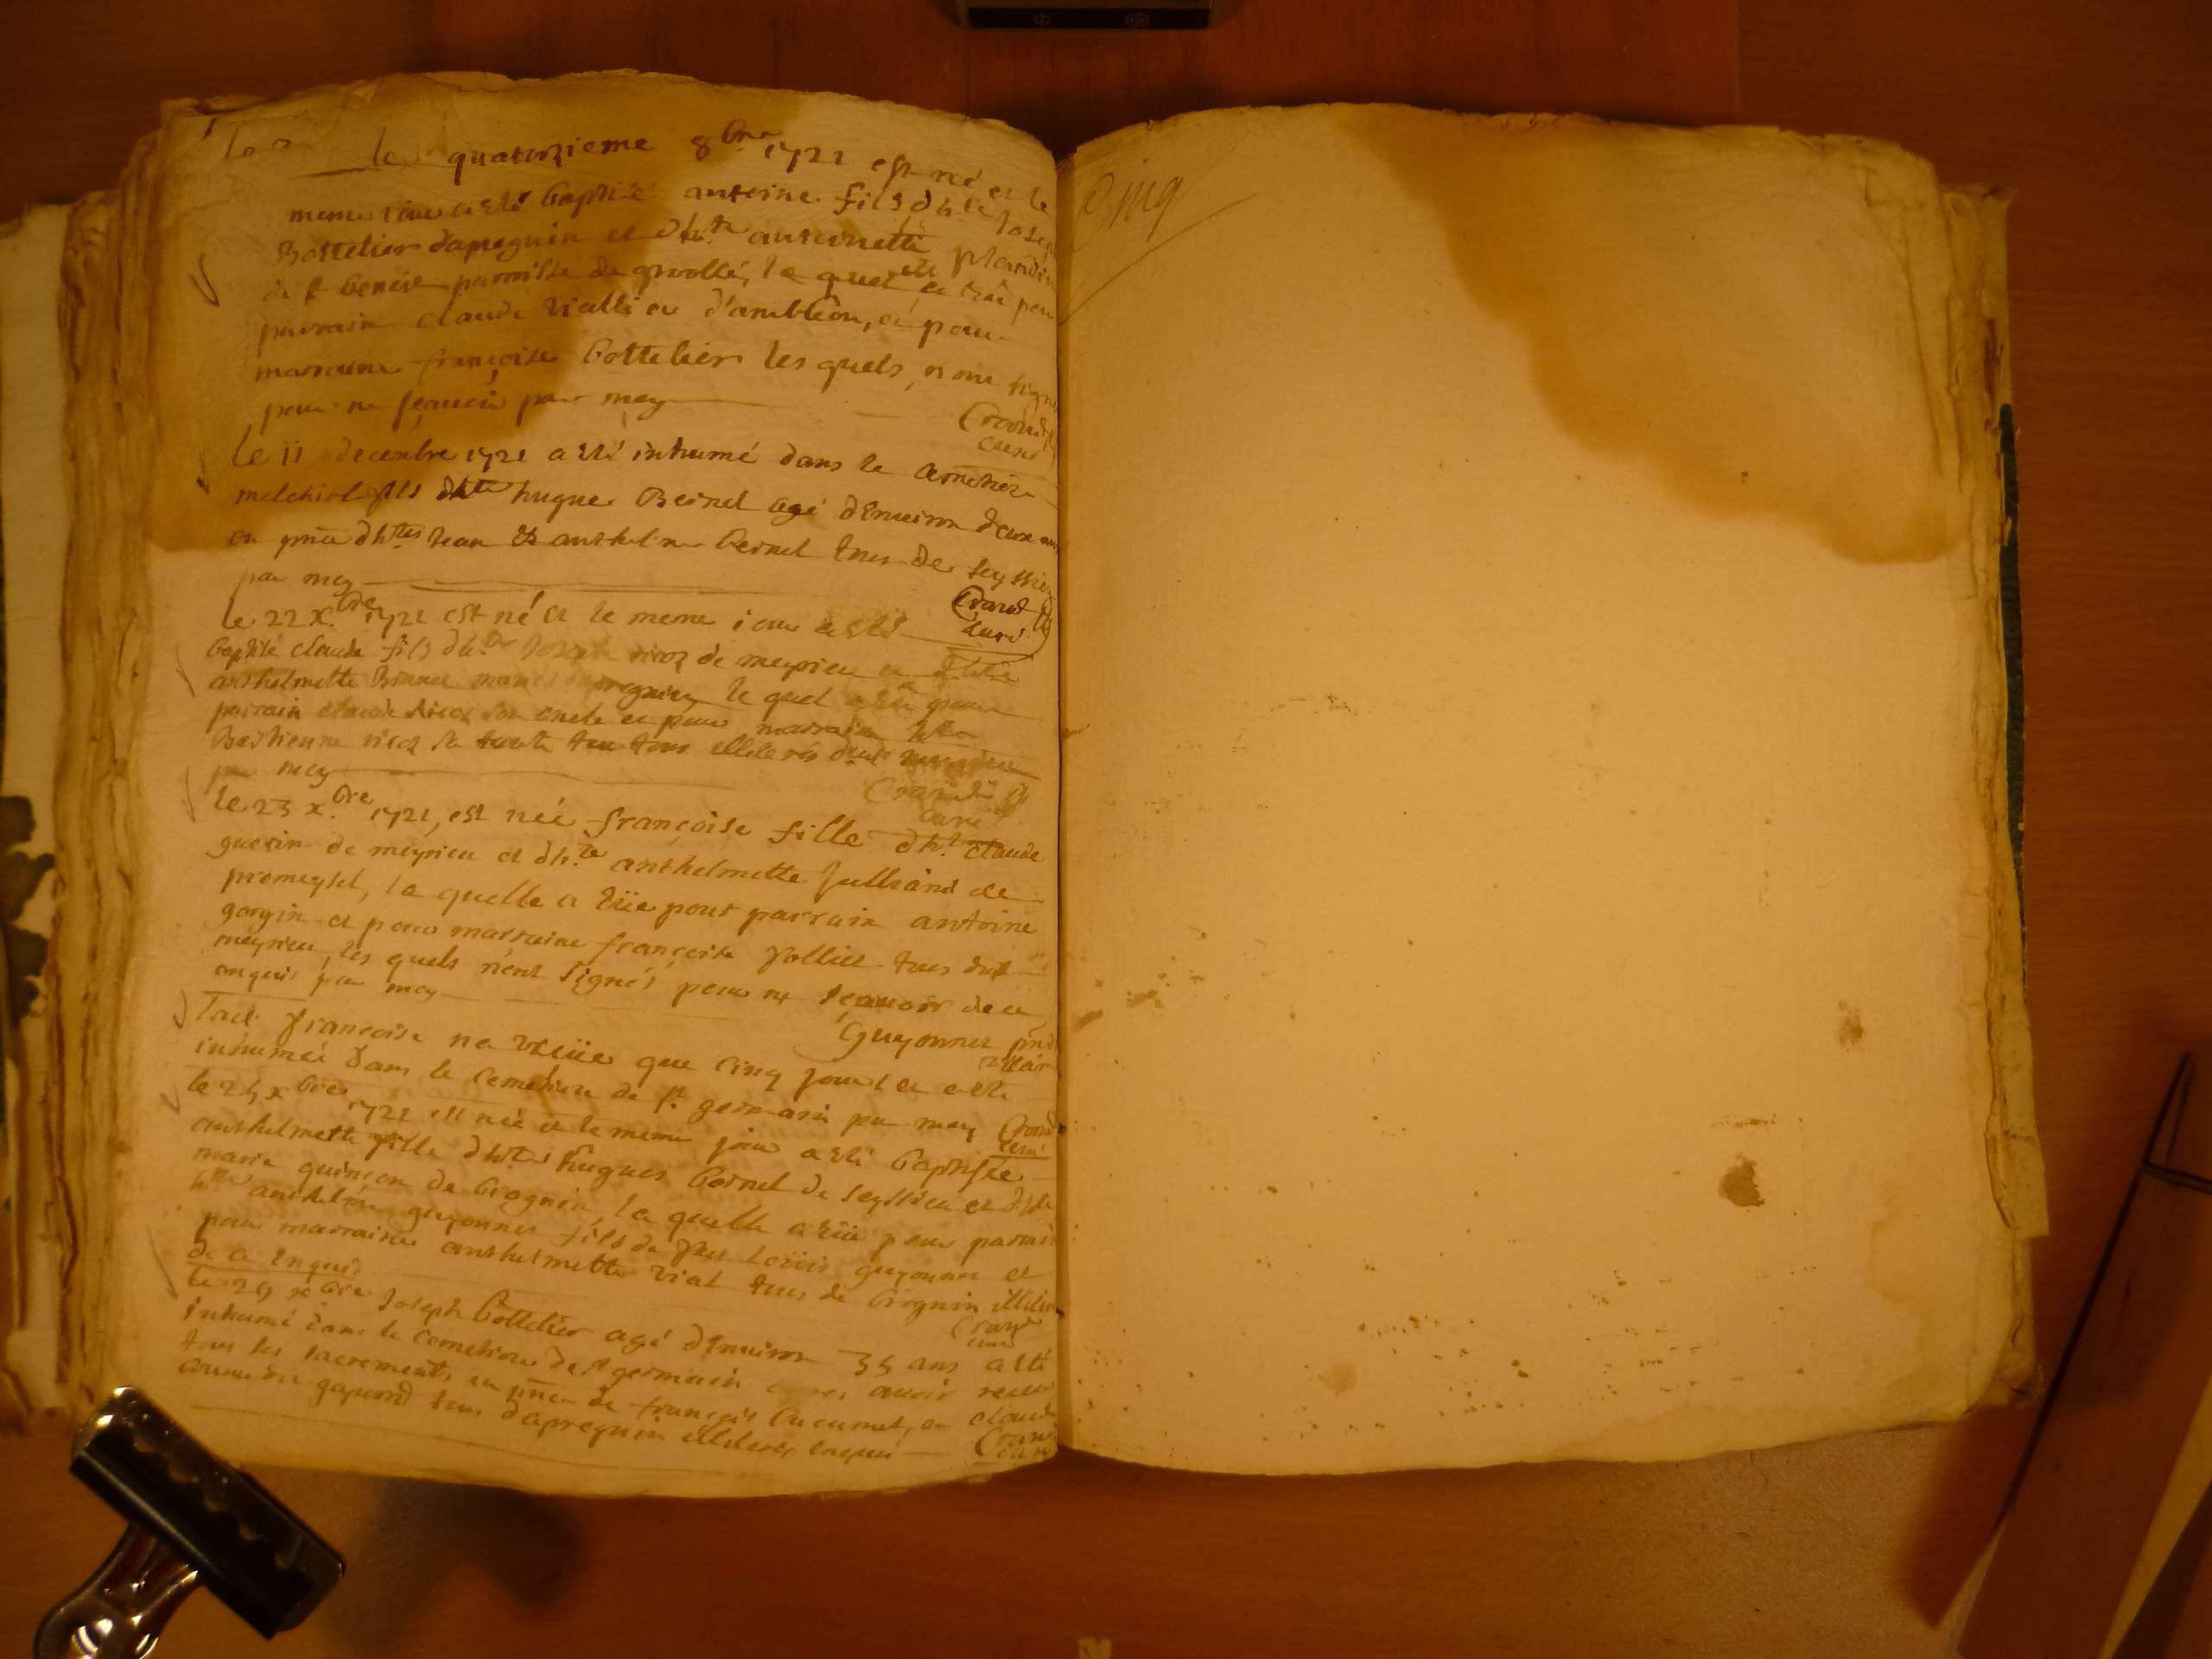 le quatorzieme 8bre 1721 est né et le
meme iour a esté baptisé antoine fils dh.te Joseph
Bottelier d'apregnin et dh.te antoinette plandin
de st benoit parroisse de grollé, le quel a eu pour
parrain claude Viallier d'ambléon, et pour
marraine françoise bottelier les quels n'ont signé
pour ne sçauoir par moy
Crand
curé
le 11 decembre 1721 a esté inhumé dans le cemetiere
melchiol fils dhte hugue Bernel agé d'enuiron deux ans
en pnce dhtes Jean et anthelme bernel tous de seyssieu
par moy
Crand
curé
le 22 x.bre 1721 est né et le meme iour a esté
baptisé claude fils dh.te Joseph de meyrieu et
anthelmette le quel a eu pour
parrain claude son oncle et pour marraine
Bastienne sa tante tous illiterés
par moy
curé
le 23 x.bre 1721, est née françoise fille dh.te claude
guerin de meyrieu et dh.te anthelmette Julliand de
premeysel, la quelle a eüe pour parrain antoine
gorgin et pour marraine françoise Vollier tous dud
meyrieu, les quels n'ont signés pour ne sçauoir de ce
enquis par moy
Guyonnet
vicair
lad. françoise na vescüe que cinq jours et a esté
inhumée dans le cemetiere de st germain par moy
Crand
curé
le 25 xbre 1721 est née et le meme jour a esté baptisée
anthelmette fille dhte hugues bernel de seyssieu et
marie quinson de brognin, la quelle a eüe pour parrain
hte anthelme guyonnet fils de feu Loüis guyonnet et
pour marraine anthelmette vial tous de brognin
de ce enquis
Crand
curé
le 29 xbre Joseph bottelier agé d'enuiron 35 ans a esté
inhumé dans le cemetiere de st germain apres auoir receu
tous les sacrements en pnce de françois cucumet, et claude
tous d'apregnin illiterés enquis
Crand
curé
Cinq